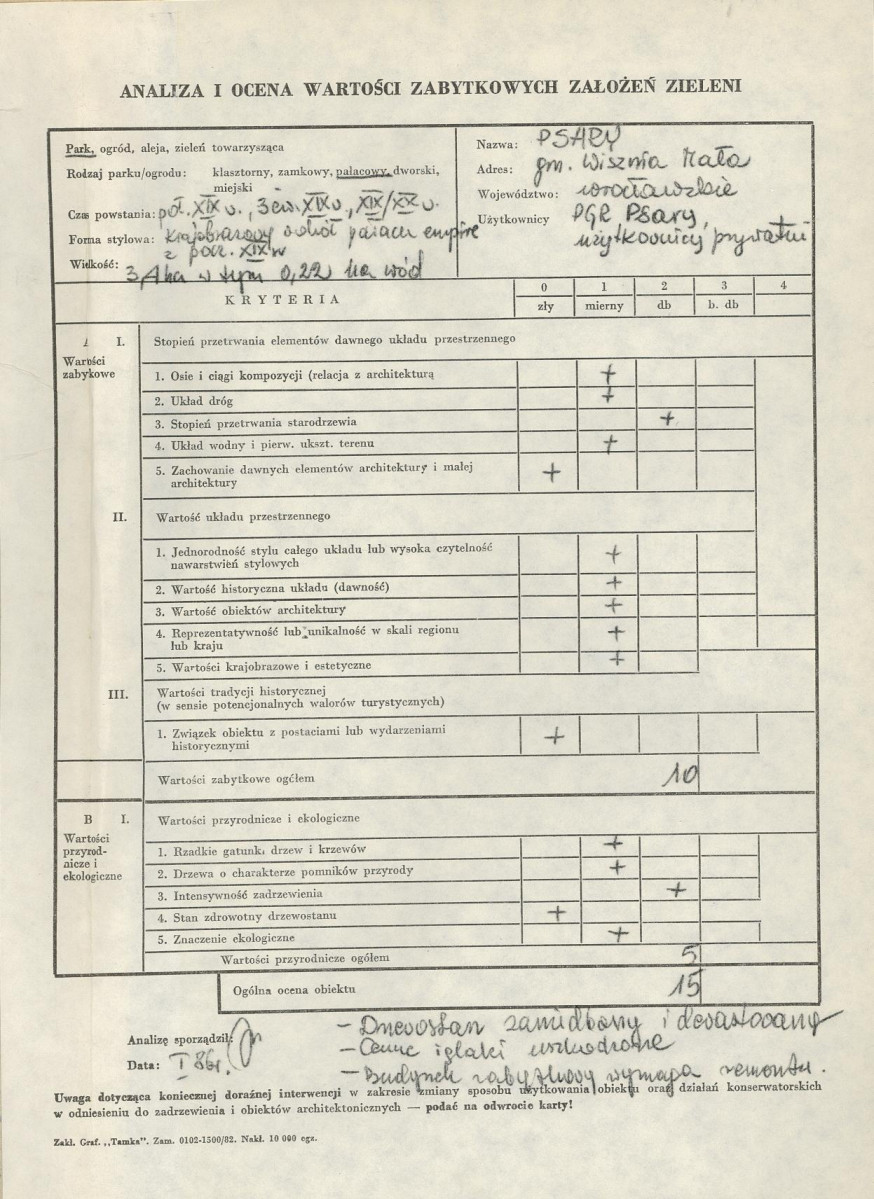 ANALIZA I OCENA WARTOŚCI ZABYTKOWYCH ZAŁOŻEŃ ZIELENI
Park, ogród, aleja, zieleń towarzysząca
Rodzaj parku/ogrodu: klasztorny, zamkowy, pałacowy, dworski,
miejski
Czas powstania: poł. XIX w., 3 ćw. XIX w., XIX/XX w.
Forma stylowa: krajobrazowy wokół pałacu empire
z pocz. XIX w
Wielkość: 3,4 ha w tym 0,22 ha wód
Nazwa: PSARY
Adres: gm. Wisznia Mała
Województwo: wrocławskie
Użytkownicy PGR Psary,
użytkownicy prywatni
KRYTERIA
0 1 2 3 4
zły mierny db b. db
I.
Wartości
zabykowe
Stopień przetrwania elementów dawnego układu przestrzennego
1. Osie i ciągi kompozycji (relacja z architekturą +
2. Układ dróg +
3. Stopień przetrwania starodrzewia +
4. Układ wodny i pierw. ukszt. terenu +
5. Zachowanie dawnych elementów architektury i małej +
architektury
II. Wartość układu przestrzennego
1. Jednorodność stylu całego układu lub wysoka czytelność +
nawarstwień stylowych
2. Wartość historyczna układu (dawność) +
3. Wartość obiektów architektury +
4. Reprezentatywność lub unikalność w skali regionu +
lub kraju
5. Wartości krajobrazowe i estetyczne +
III. Wartości tradycji historycznej
(w sensie potencjonalnych walorów turystycznych)
1. Związek obiektu z postaciami lub wydarzeniami +
historycznymi
Wartości zabytkowe ogółem 10
B I. Wartości przyrodnicze i ekologiczne
Wartości
przyrod-
nicze i
ekologiczne
1. Rzadkie gatunki drzew i krzewów +
2. Drzewa o charakterze pomników przyrody +
3. Intensywność zadrzewienia +
4. Stan zdrowotny drzewostanu +
5. Znaczenie ekologiczne +
Wartości przyrodnicze ogółem 5
Ogólna ocena obiektu 15
Analizę sporządził:
Data: I 86r.
- Drzewostan zaniedbany i dewastowany
- Cenne iglaki uszkodzone
- Budynek zabytkowy wymaga remontu.
Uwaga dotycząca koniecznej doraźnej interwencji w zakresie zmiany sposobu użytkowania obiektu oraz działań konserwatorskich
w odniesieniu do zadrzewienia i obiektów architektonicznych — podać na odwrocie karty!
Zakł. Graf. „Tamka". Zam. 0102-1500/82. Nakł. 10 000 egz.